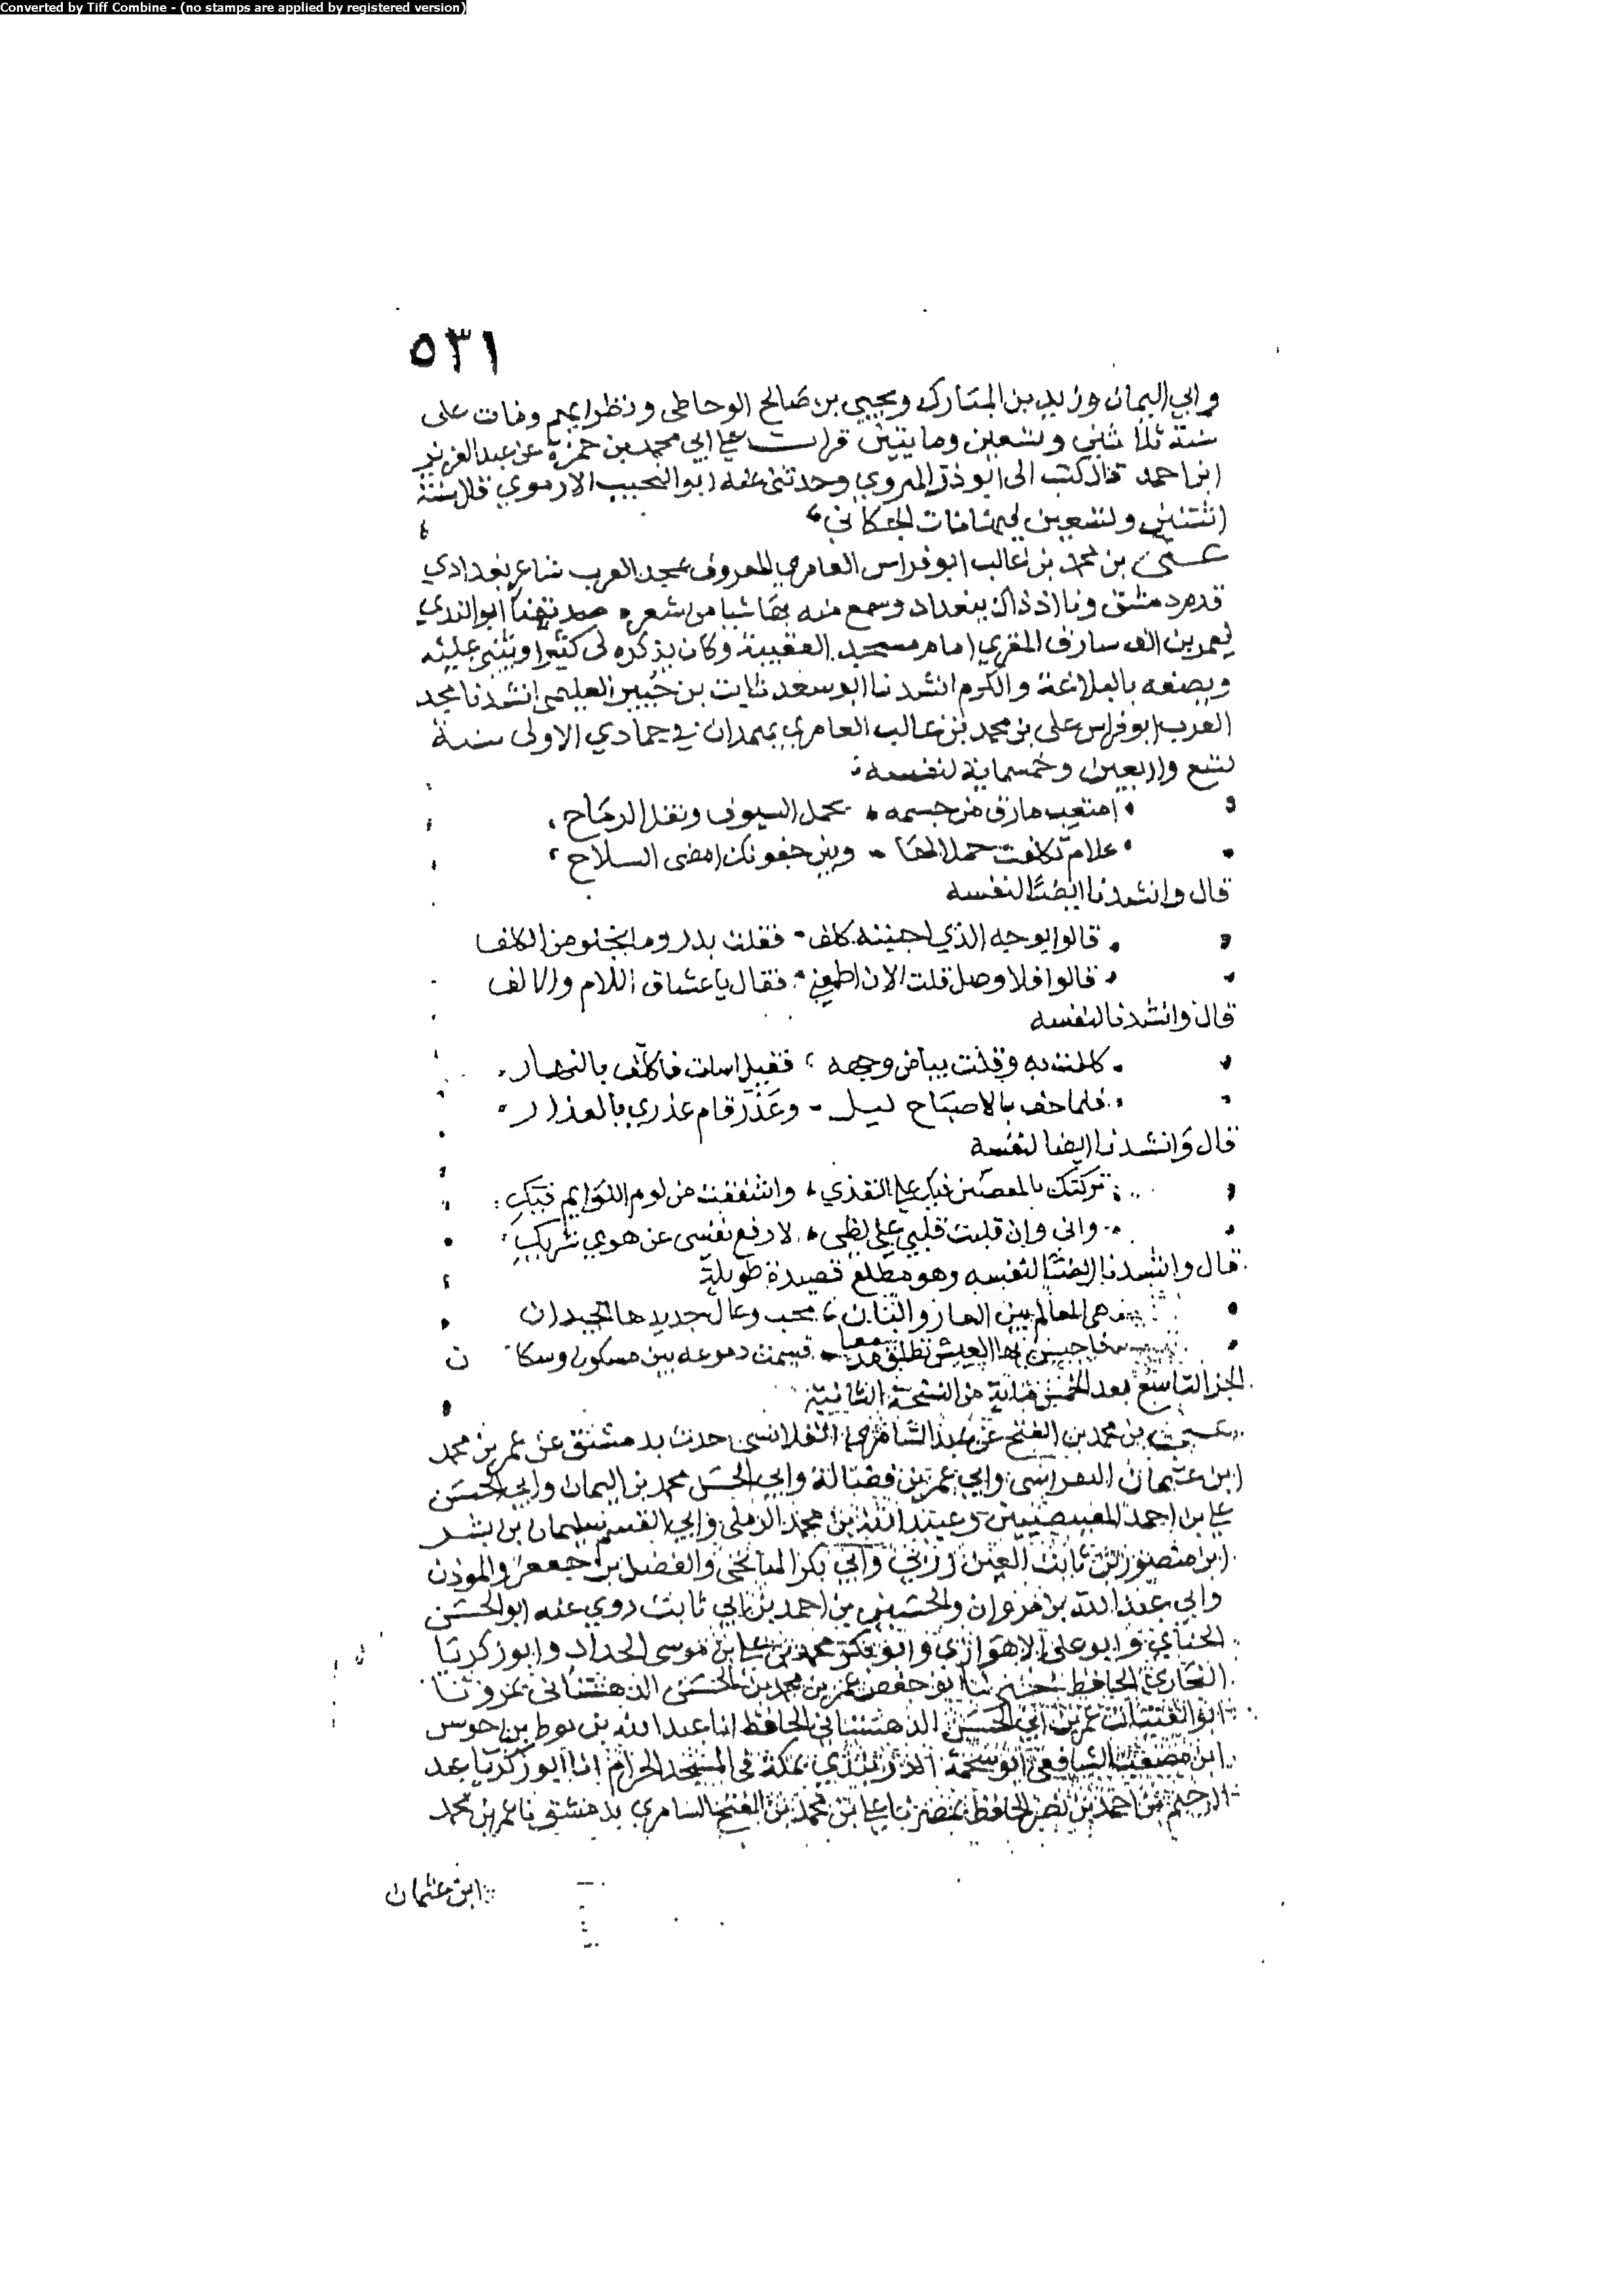 Converted by Tiff Combine - (no stamps are applied by registered version)
٥٣١
وابي اليمان وزيد بن المبارك ويحيى بن صالح الوحاظي ونظرايهم ومات على
سنة ثلاث وتسعين ومايتين قرات على ابي محمد بن حمزة عن عبد العزيز
ابن احمد قال كتب الى ابو ذر الهروي وحدثني عنه ابو النجيب الارموي قال سنة
اثنتين وتسعين مات الجكاني
على بن محمد بن غالب ابو فراس العامري المعروف بمجد العرب شاعر بغدادي
قدم دمشق وانا اذ ذاك ببغداد وسمع منه بها شيا من شعره حدثنا ابو الندي
يعمر بن الف سارف المقري امام مسجد العقيبة وكان يذكره لى كثيرا ويثني عليه
ويصفه بالبلاغة والكرم انشدنا ابو سعد ثابت بن جبير العليمي انشدنا مجد
العرب ابو فراس على بن محمد بن غالب العامري بهمدان في جمادي الاولى سنة
تسع واربعين وخمسماية لنفسه
امتعب مارق من جسمه بحمل السيوف ونقل الرماح
علام تكلفت حملا لها وبين جفونك امضى السلاح
قال وانشدنا ايضا لنفسه
قالوا بوجه الذي احببته كلف فقلت بدر وما يخلو من الكلف
قالوا فلا وصل قلت الان اطمعني فقال يا عشاق اللام والالف
قال وانشدنا لنفسه
كلفت به وقلت بياض وجهه فقيل اسات فاكلف بالنهار
فلما حف بالاصباح ليل وعذر قام عذري بالعذار
قال وانشدنا ايضا لنفسه
تركتك والى وان قلبت قلبي على لظى لا رفع نفسي عن هوي شريك
قال وانشدنا ايضا لنفسه وهو مطلع قصيدة طويلة
هي المعالم بين والبان محب وعال جديدها الجيدان
قسمت دموعه بين مسكوب وسكا ن
الجز التاسع بعد الخمس ماية من النسخة الثانية
على بن محمد بن الفتح السامري القلانسي حدث بدمشق عن عمر بن محمد
ابن عثمان وابي عمر بن فضالة وابي الحسن محمد بن اليمان وابي الحسن
علي بن احمد المصيصيين وعبد الله بن محمد الرملي وابي القسم سليمان بن بشر
ابن منصور بن ثابت العين زربي وابي بكر الميانجي والفضل بن جعفر والموذن
وابي عبد الله بن مروان والحسين بن احمد بن ابي ثابت روي عنه ابو الحسن
الحنايي وابو على الاهوازي وابو بكر محمد بن علي بن موسى الحداد وابو زكريا
البخاري الحافظ اخبرنا ابو حفص عمر بن محمد بن الحسن الدهستاني بمرو ثنا
ابو الفتيان عمر بن ابي الحسن الدهستاني الحافظ انا عبد الله بن
ابن الشافعي بمكة في المسجد الحرام انا ابو زكريا عبد
الرحيم بن احمد بن نصر الحافظ بمصر نا علي بن محمد بن الفتح السامري بدمشق نا عمر بن محمد
ابن عثمان